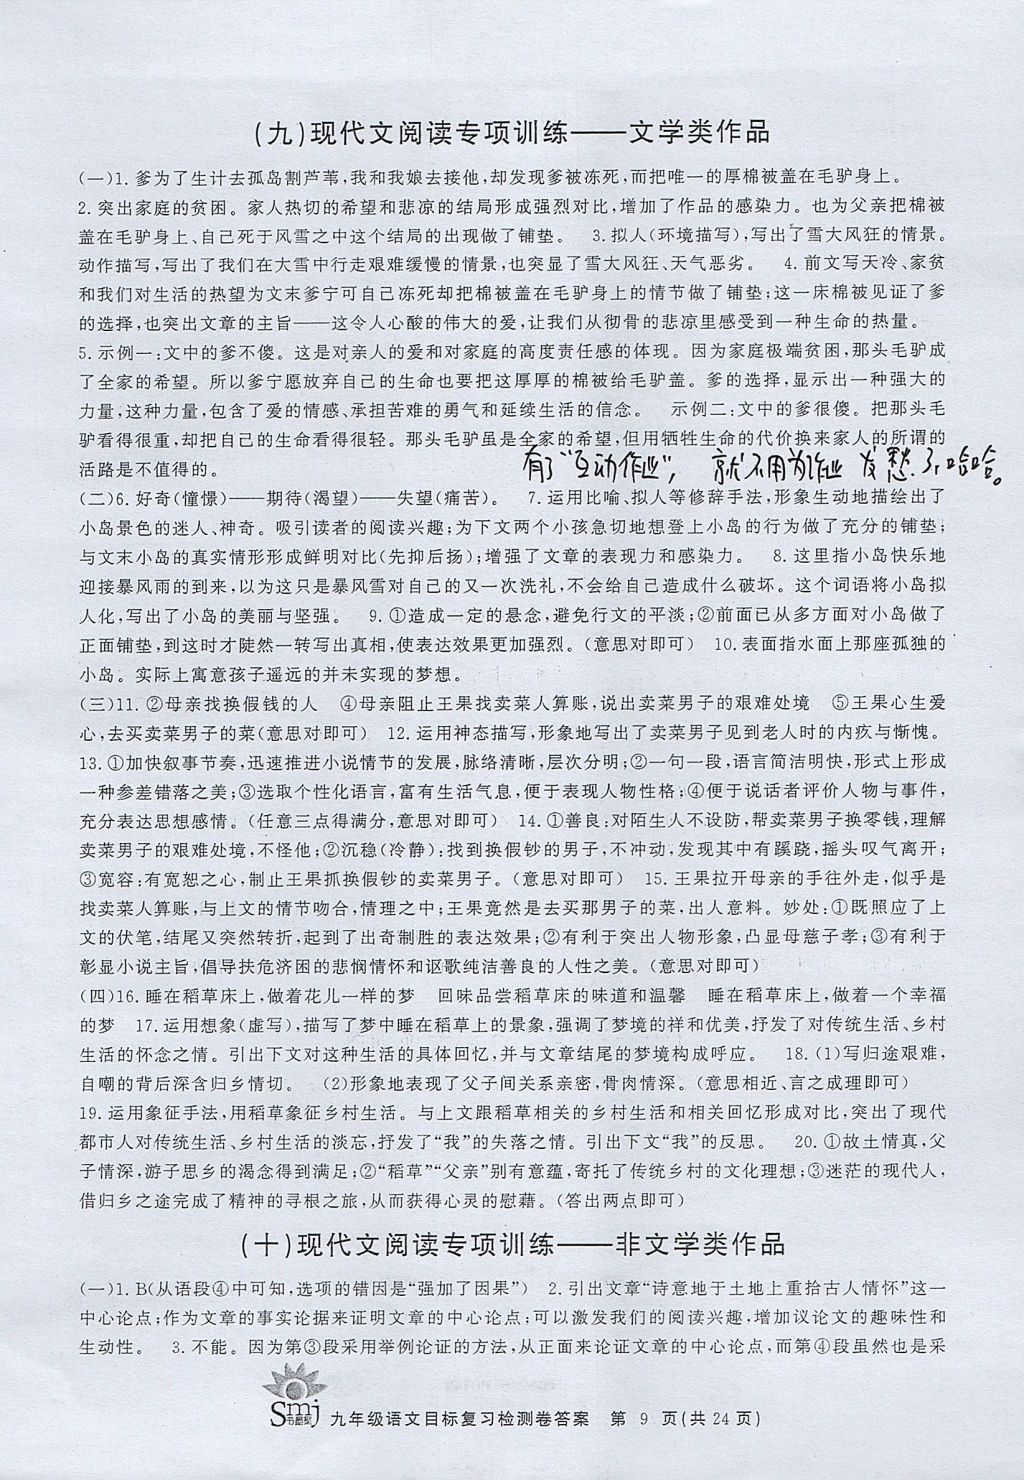 (九)现代文阅读专项训练——文学类作品
(一)1.爹为了生计去孤岛割芦苇,我和我娘去接他,却发现爹被冻死,而把唯一的厚棉被盖在毛驴身上。
2.突出家庭的贫困。家人热切的希望和悲凉的结局形成强烈对比,增加了作品的感染力。也为父亲把棉被
盖在毛驴身上、自己死于风雪之中这个结局的出现做了铺垫。 3.拟人(环境描写),写出了雪大风狂的情景。
动作描写,写出了我们在大雪中行走艰难缓慢的情景,也突显了雪大风狂、天气恶劣。 4.前文写天冷、家贫
和我们对生活的热望为文末爹宁可自己冻死却把棉被盖在毛驴身上的情节做了铺垫;这一床棉被见证了爹
的选择,也突出文章的主旨——这令人心酸的伟大的爱,让我们从彻骨的悲凉里感受到一种生命的热量。
5.示例一:文中的爹不傻。这是对亲人的爱和对家庭的高度责任感的体现。因为家庭极端贫困,那头毛驴成
了全家的希望。所以爹宁愿放弃自己的生命也要把这厚厚的棉被给毛驴盖。爹的选择,显示出一种强大的
力量,这种力量,包含了爱的情感、承担苦难的勇气和延续生活的信念。 示例二:文中的爹很傻。把那头毛
驴看得很重,却把自己的生命看得很轻。那头毛驴虽是全家的希望,但用牺牲生命的代价换来家人的所谓的
活路是不值得的。
有了“互动作业”, 就不用为作业发愁了,哈哈。
(二)6.好奇(憧憬)——期待(渴望)——失望(痛苦)。 7.运用比喻、拟人等修辞手法,形象生动地描绘出了
小岛景色的迷人、神奇。吸引读者的阅读兴趣;为下文两个小孩急切地想登上小岛的行为做了充分的铺垫;
与文末小岛的真实情形形成鲜明对比(先抑后扬);增强了文章的表现力和感染力。 8.这里指小岛快乐地
迎接暴风雨的到来,以为这只是暴风雪对自己的又一次洗礼,不会给自己造成什么破坏。这个词语将小岛拟
人化,写出了小岛的美丽与坚强。 9.①造成一定的悬念,避免行文的平淡;②前面已从多方面对小岛做了
正面铺垫,到这时才陡然一转写出真相,使表达效果更加强烈。(意思对即可) 10.表面指水面上那座孤独的
小岛。实际上寓意孩子遥远的并未实现的梦想。
(三)11.②母亲找换假钱的人 ④母亲阻止王果找卖菜人算账,说出卖菜男子的艰难处境 ⑤王果心生爱
心,去买卖菜男子的菜(意思对即可) 12.运用神态描写,形象地写出了卖菜男子见到老人时的内疚与惭愧。
13.①加快叙事节奏,迅速推进小说情节的发展,脉络清晰,层次分明;②一句一段,语言简洁明快,形式上形成
一种参差错落之美;③选取个性化语言,富有生活气息,便于表现人物性格;④便于说话者评价人物与事件,
充分表达思想感情。(任意三点得满分,意思对即可) 14.①善良:对陌生人不设防,帮卖菜男子换零钱,理解
卖菜男子的艰难处境,不怪他;②沉稳(冷静):找到换假钞的男子,不冲动,发现其中有蹊跷,摇头叹气离开;
③宽容:有宽恕之心,制止王果抓换假钞的卖菜男子。(意思对即可) 15.王果拉开母亲的手往外走,似乎是
找卖菜人算账,与上文的情节吻合,情理之中;王果竟然是去买那男子的菜,出人意料。妙处:①既照应了上
文的伏笔,结尾又突然转折,起到了出奇制胜的表达效果;②有利于突出人物形象,凸显母慈子孝;③有利于
彰显小说主旨,倡导扶危济困的悲悯情怀和讴歌纯洁善良的人性之美。(意思对即可)
(四)16.睡在稻草床上,做着花儿一样的梦 回味品尝稻草床的味道和温馨 睡在稻草床上,做着一个幸福
的梦 17.运用想象(虚写),描写了梦中睡在稻草上的景象,强调了梦境的祥和优美,抒发了对传统生活、乡村
生活的怀念之情。引出下文对这种生活的具体回忆,并与文章结尾的梦境构成呼应。 18.(1)写归途艰难,
自嘲的背后深含归乡情切。 (2)形象地表现了父子间关系亲密,骨肉情深。(意思相近、言之成理即可)
19.运用象征手法,用稻草象征乡村生活。与上文跟稻草相关的乡村生活和相关回忆形成对比,突出了现代
都市人对传统生活、乡村生活的淡忘,抒发了“我”的失落之情。引出下文“我”的反思。 20.①故土情真,父
子情深,游子思乡的渴念得到满足;②“稻草”“父亲”别有意蕴,寄托了传统乡村的文化理想;③迷茫的现代人,
借归乡之途完成了精神的寻根之旅,从而获得心灵的慰藉。(答出两点即可)
(十)现代文阅读专项训练——非文学类作品
(一)1.B(从语段④中可知,选项的错因是“强加了因果”) 2.引出文章“诗意地于土地上重拾古人情怀”这一
中心论点;作为文章的事实论据来证明文章的中心论点;可以激发我们的阅读兴趣,增加议论文的趣味性和
生动性。 3.不能。因为第③段采用举例论证的方法,从正面来论证文章的中心论点,而第④段虽然也是采
Smj
九年级语文目标复习检测卷答案 第 9 页(共24页)